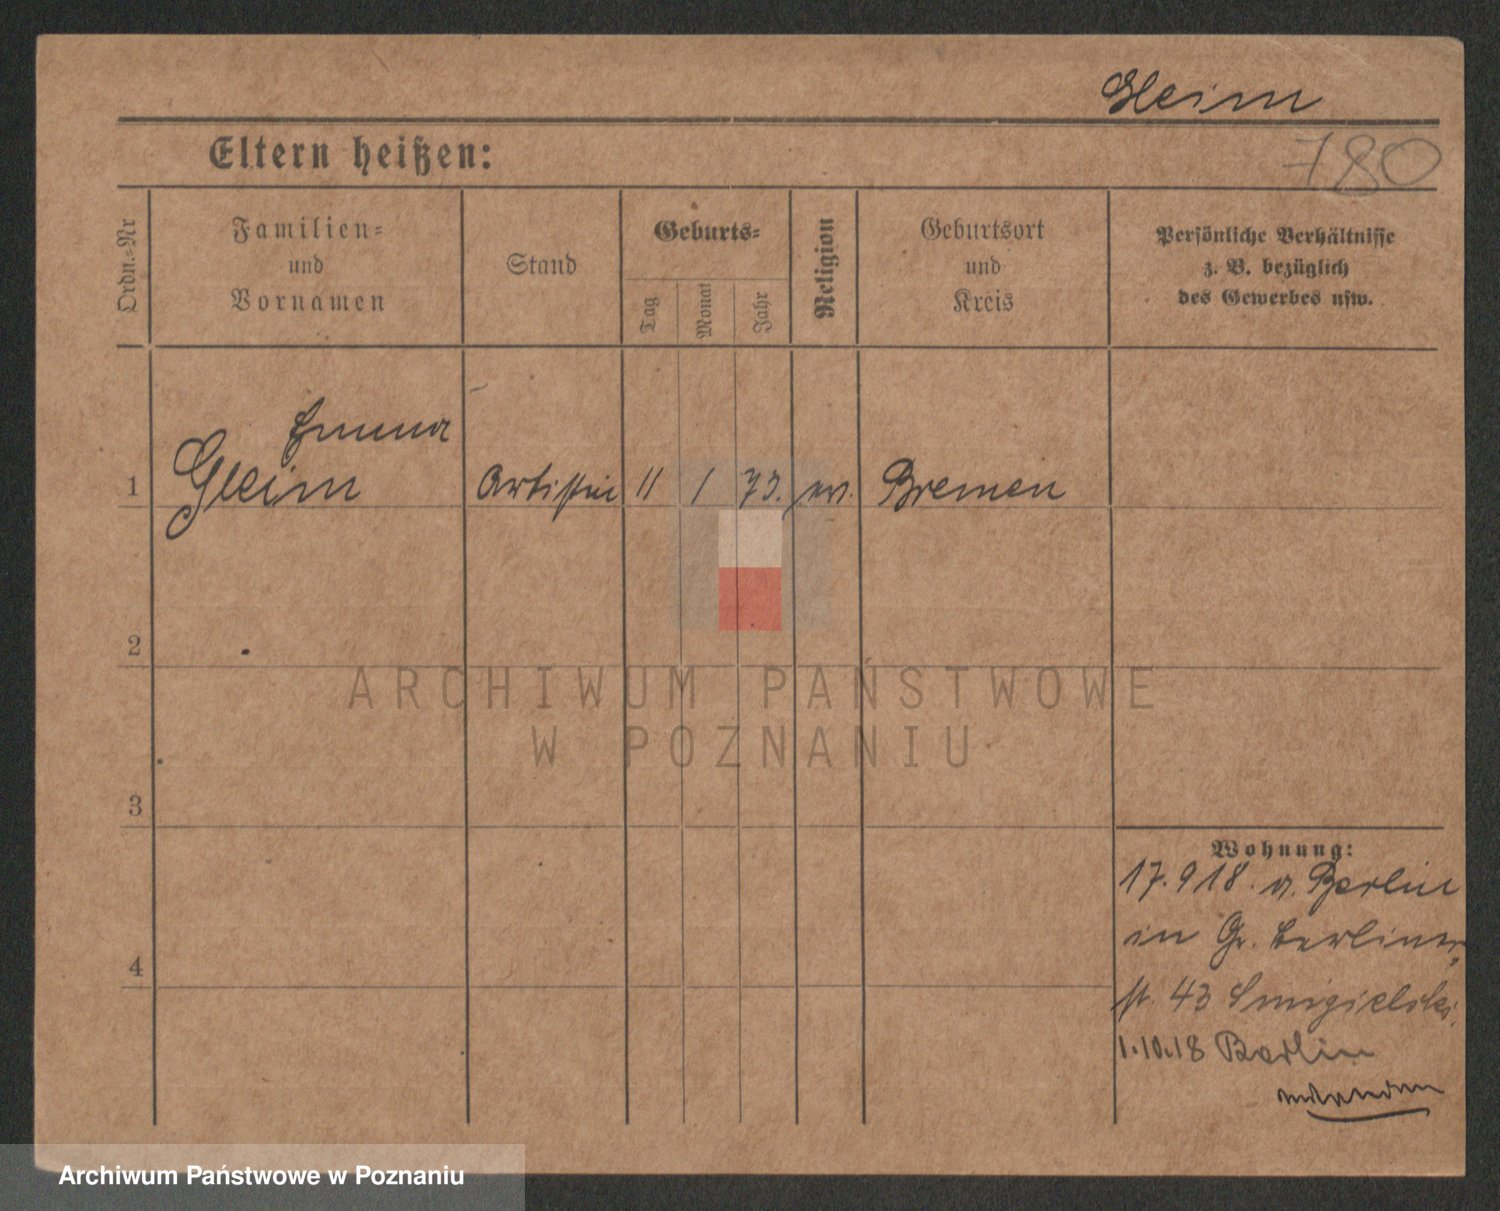 Gleim
Eltern heißen:
780
Ordn.-Nr
Familien-
und
Vornamen
Stand
Geburts-
Tag
Monat
Jahr
Religion
Geburtsort
und
Kreis
Persönliche Verhältnisse
z. B. bezüglich
des Gewerbes usw.
Emma
1 Gleim Artistin 11 1 73. ev. Bremen
2
3
4
Wohnung:
17.9 18. a. Berlin
in Gr. Berliner
st. 43 Smigielski
1.10.18 Berlin
ARCHIWUM PAŃSTWOWE
W POZNANIU
Archiwum Państwowe w Poznaniu